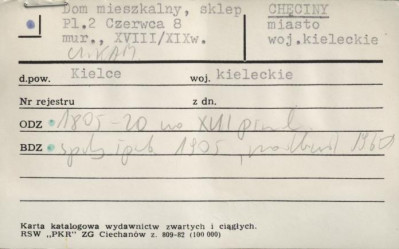 Dom mieszkalny, sklep
Pl.2 Czerwca 8
mur., XVIII/XIXw.
CHĘCINY
miasto
woj.kieleckie
d.pow. Kielce woj. kieleckie
Nr rejestru z dn.
ODZ 1805-20 XVIII
BDZ 1905, 1960
Karta katalogowa wydawnictw zwartych i ciągłych.
RSW „PKR” ZG Ciechanów z. 809-82 (100 000)